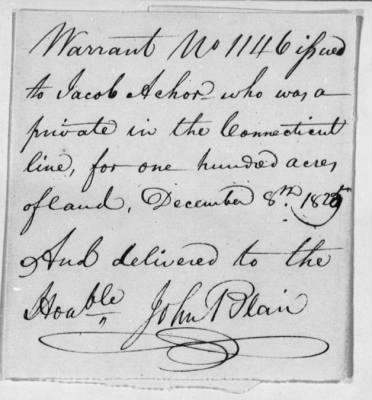 Warrant No 1146 issued
to Jacob Achor who was a
private in the Connecticut
line, for one hundred acres
of land, December 8th
And delivered to the
Honble John Blair